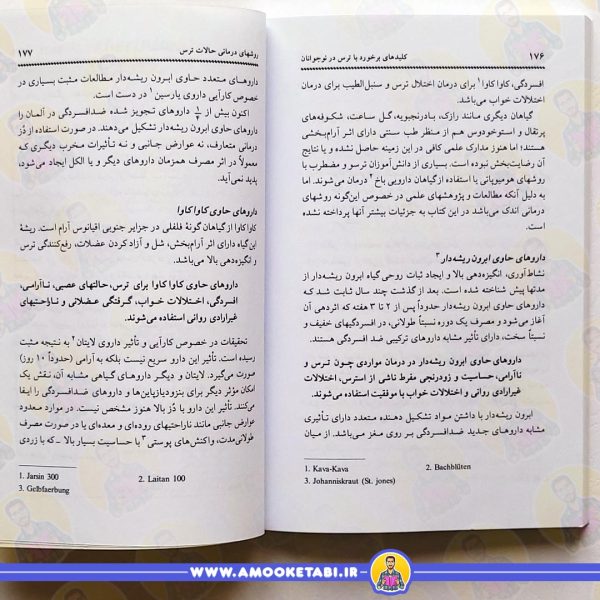 ۱۷۶ کلیدهای برخورد با ترس در نوجوانان
افسردگی، کاوا کاوا ۱ برای درمان اختلال ترس و سنبل‌الطیب برای درمان
اختلالات خواب می‌باشد.
گیاهان دیگری مانند رازک، بادرنجبویه، گل ساعت، شکوفه‌های
پرتقال و استوخودوس هم از منظر طب سنتی دارای اثر آرام‌بخشی
هستند؛ اما هنوز مدارک علمی کافی در این زمینه حاصل نشده و یا نتایج
آن رضایت‌بخش نبوده است. بسیاری از دانش‌آموزان ترسو و مضطرب با
روشهای هومیوپاتی یا استفاده از گیاهان دارویی باخ ۲ درمان می‌شوند. اما
به دلیل آنکه مطالعات و پژوهشهای علمی در خصوص این‌گونه روشهای
درمانی اندک می‌باشد در این کتاب به جزئیات بیشتر آنها پرداخته نشده
است.
داروهای حاوی ابرون ریشه‌دار ۳
نشاط‌آوری، انگیزه‌دهی بالا و ایجاد ثبات روحی گیاه ابرون ریشه‌دار از
مدتها پیش شناخته شده است. از بعد از گذشت چند سال ثابت شد که
داروهای حاوی ابرون ریشه‌دار حدوداً پس از ۲ تا ۳ هفته که اثردهی آن
آغاز می‌شود و مصرف یک دوره نسبتاً طولانی، در افسردگیهای خفیف و
نسبتاً سخت، دارای تأثیر مشابه داروهای ترکیبی ضد افسردگی هستند.
داروهای حاوی ابرون ریشه‌دار در درمان مواردی چون ترس و
ناآرامی، حساسیت و زودرنجی مفرط ناشی از استرس، اختلالات
غیرارادی روانی و اختلالات خواب با موفقیت استفاده می‌شوند.
ابرون ریشه‌دار با داشتن مواد تشکیل دهنده متعدد دارای تأثیری
مشابه داروهای جدید ضدافسردگی بر مغز می‌باشد. از میان
1. Kava-Kava 2. Bachblüten
3. Johanniskraut (St. jones)
روشهای درمانی حالات ترس ۱۷۷
داروهای متعدد حاوی ابرون ریشه‌دار مطالعات مثبت بسیاری در
خصوص کارآیی داروی یارسین ۱ در دست است.
اکنون بیش از داروهای تجویز شده ضدافسردگی در آلمان را
داروهای حاوی ابرون ریشه‌دار تشکیل می‌دهند. در صورت استفاده از دُز
درمانی متعارف، نه عوارض جانبی و نه تأثیرات مخرب دیگری که
معمولاً در اثر مصرف همزمان داروهای دیگر و یا الکل ایجاد می‌شود،
پدید نمی‌آید.
داروهای حاوی کاوا کاوا
کاوا کاوا از گیاهان گونهٔ فلفلی در جزایر جنوبی اقیانوس آرام است. ریشهٔ
این گیاه دارای اثر آرام‌بخش، شل و آزاد کردن عضلات، رفع‌کنندگی ترس
و انگیزه‌دهی بالا می‌باشد.
داروهای حاوی کاوا کاوا برای ترس، حالتهای عصبی، ناآرامی،
افسردگی، اختلالات خواب، گرفتگی عضلانی و ناراحتیهای
غیرارادی روانی استفاده می‌شوند.
تحقیقات در خصوص کارآیی و تأثیر داروی لایتان ۲ به نتیجه مثبت
رسیده است. تأثیر این دارو سریع نیست بلکه به آرامی (حدوداً ۱۰ روز)
صورت می‌گیرد. لایتان و دیگر داروهای گیاهی مشابه آن، نقش یک
امکان مؤثر دیگر برای بنزودیازپاین‌ها و داروهای ضدافسردگی را ایفا
می‌کنند. تأثیر این دارو با دُز بالا هنوز مشخص نیست. در موارد معدود
عوارض جانبی مانند ناراحتیهای روده‌ای و معده‌ای یا در صورت مصرف
طولانی‌مدت، واکنش‌های پوستی ۳ با حساسیت بسیار بالا ـ که با زردی
1. Jarsin 300 2. Laitan 100
3. Gelbfaerbung
WWW.AMOOKETABI.IR